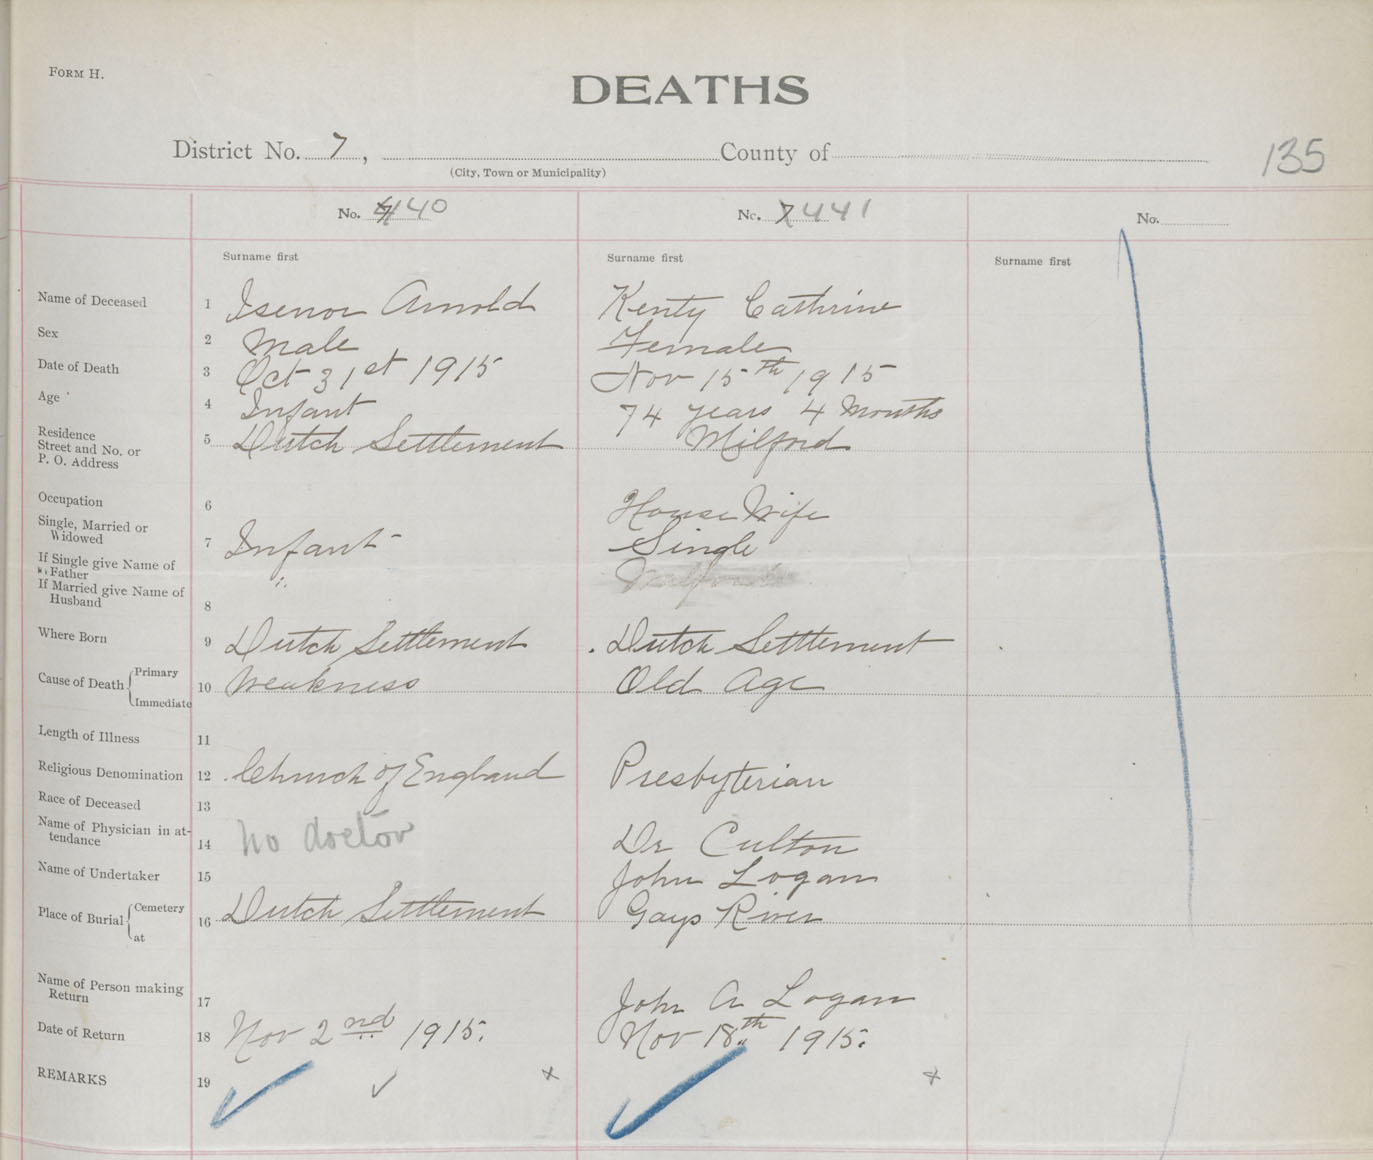 FORM H.
DEATHS
District No. 7, County of
(City, Town or Municipality)
135
No. 440 No. 441 No.
Surname first Surname first Surname first
Name of Deceased 1 Isenor Arnold Kenty Cathrine
Sex 2 Male Female
Date of Death 3 Oct 31st 1915 Nov 15th 1915
Age 4 Infant 74 years 4 Months
Residence
Street and No. or
P. O. Address 5 Dutch Settlement Milford
Occupation 6 House Wife
Single, Married or
Widowed 7 Infant - Single
If Single give Name of
Father "
If Married give Name of
Husband 8
Where Born 9 Dutch Settlement Dutch Settlement
Cause of Death Primary
Immediate 10 Weakness Old Age
Length of Illness 11
Religious Denomination 12 Church of England Presbyterian
Race of Deceased 13
Name of Physician in at-
tendance 14 no doctor Dr Culton
Name of Undertaker 15 John Logan
Place of Burial Cemetery
at 16 Dutch Settlement Gays River
Name of Person making
Return 17 John A Logan
Date of Return 18 Nov 2nd 1915. Nov 18th 1915.
REMARKS 19 ✓ ✓ x ✓ x